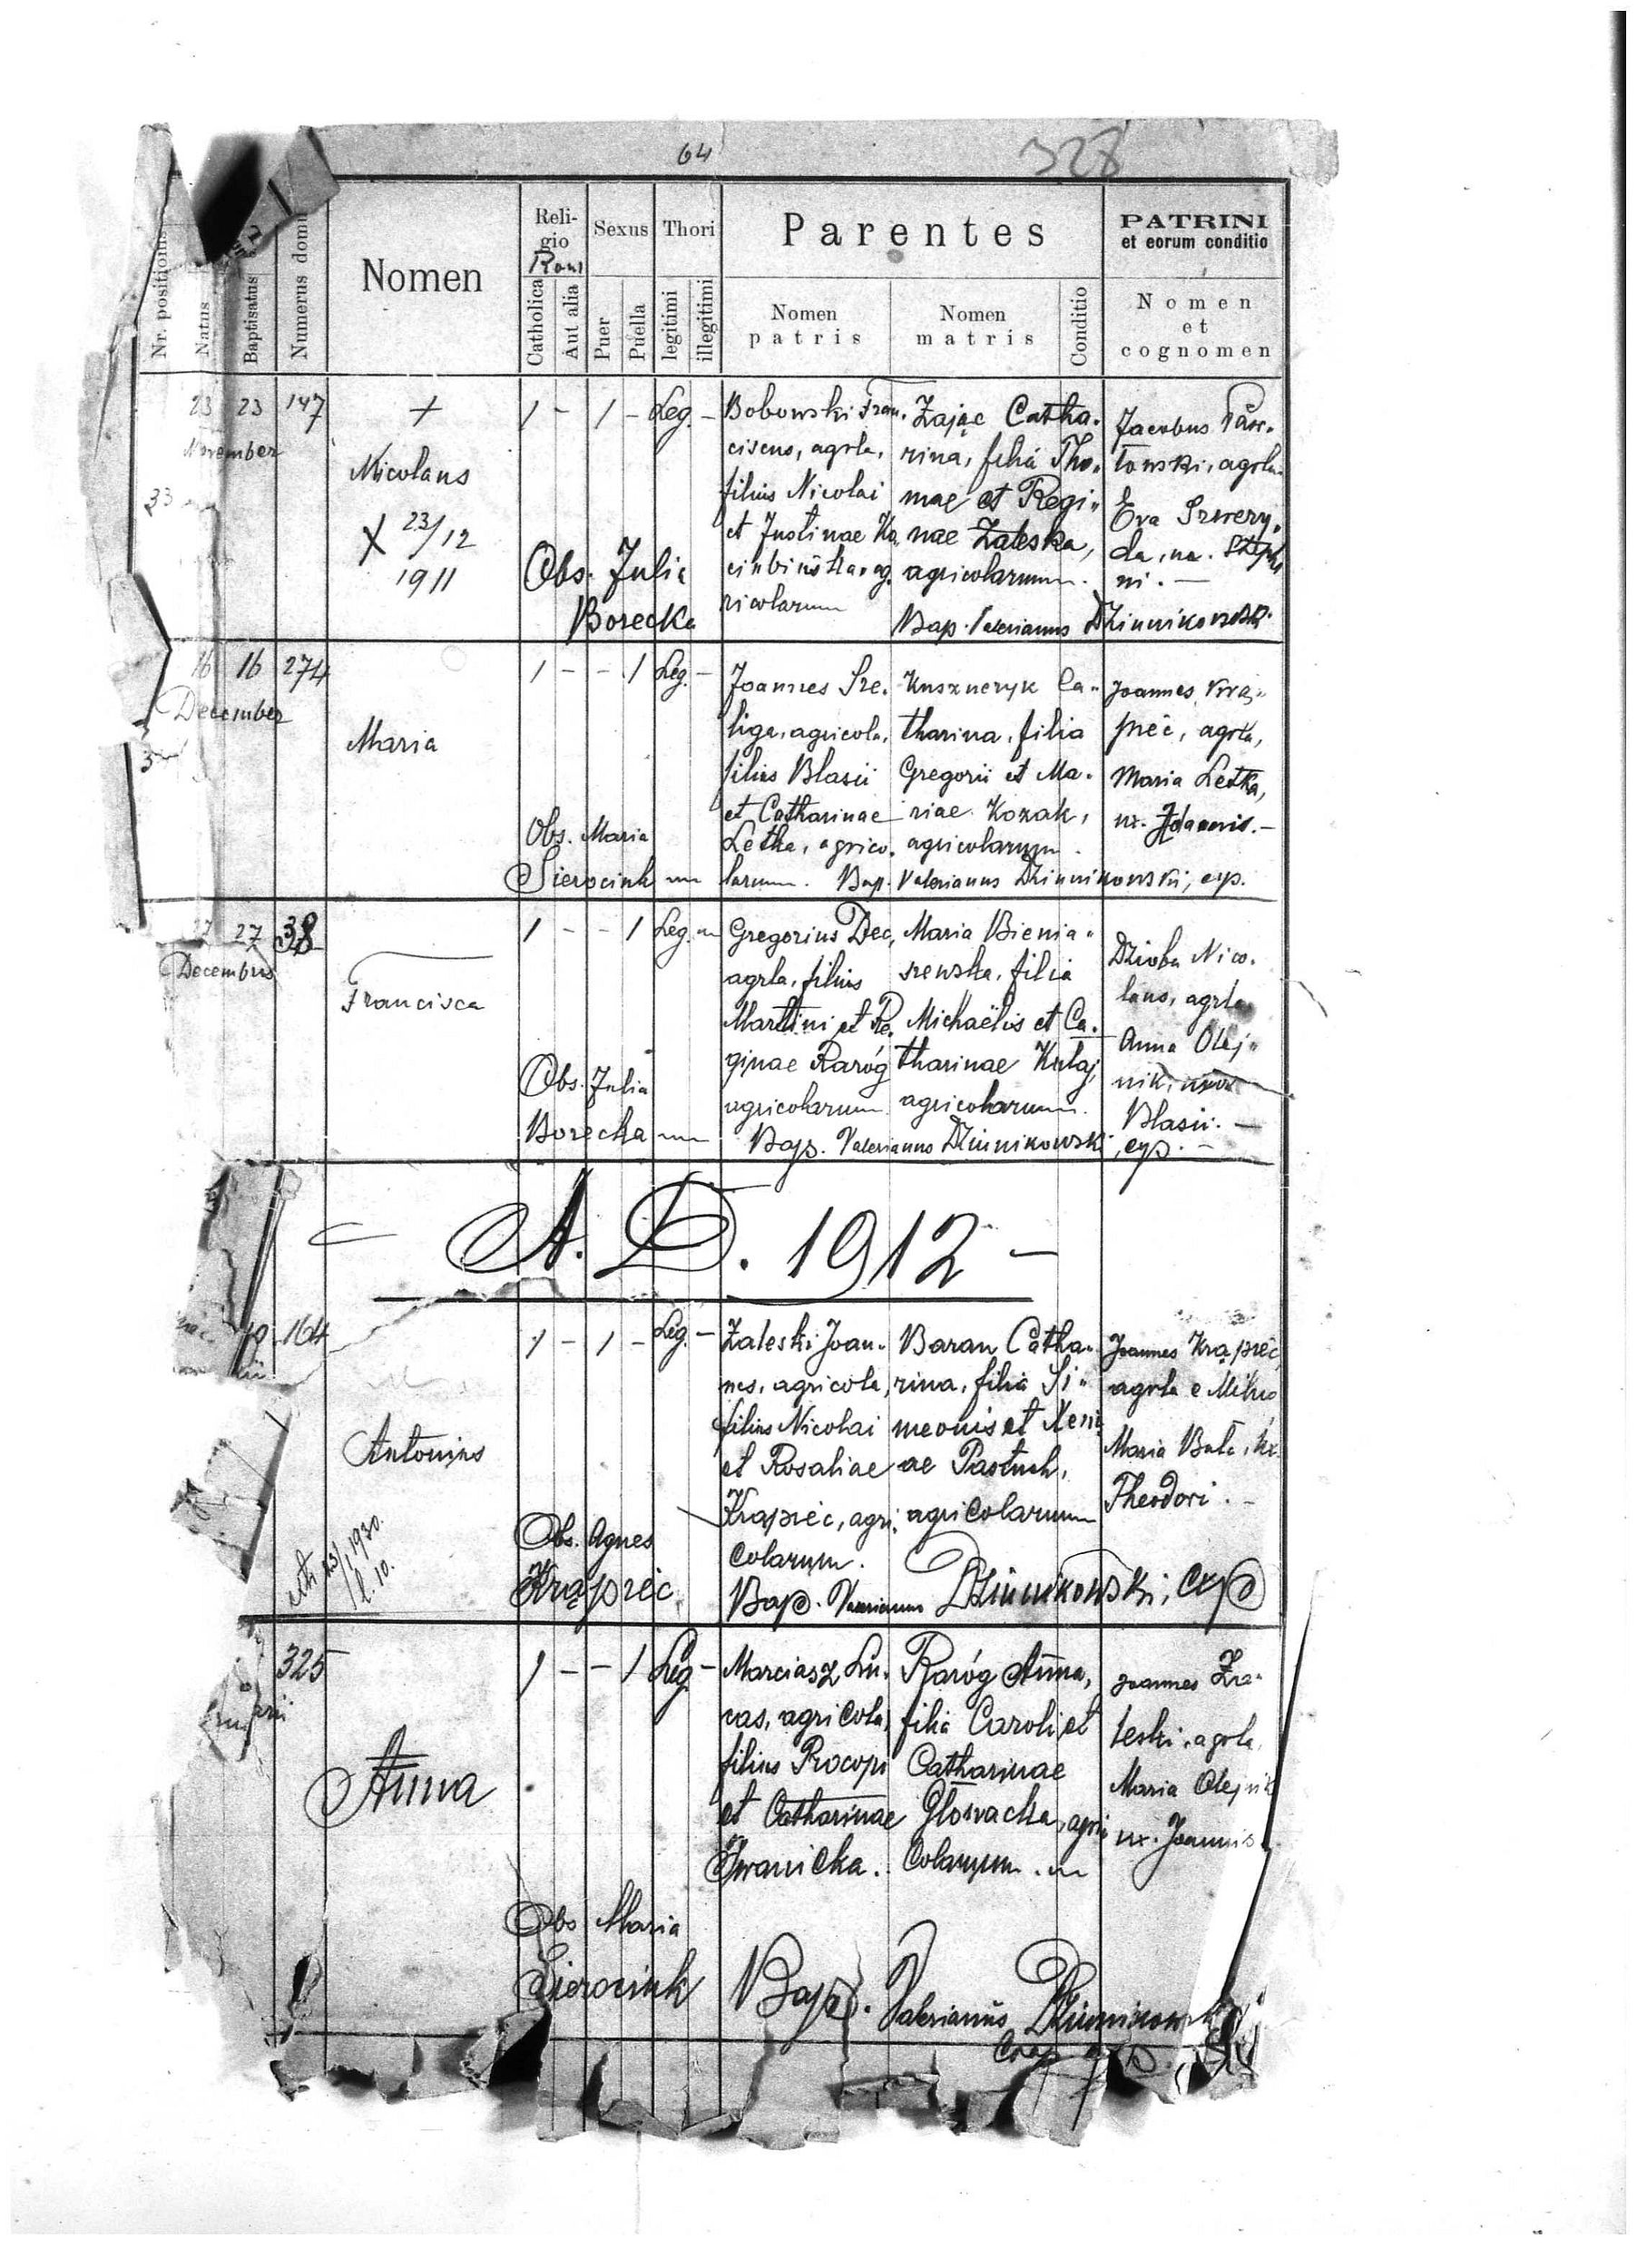 64
328
Nr. positionis
Natus
Baptisatus
Numerus domus
Nomen
Reli-
gio
Rom
Catholica
Aut alia
Sexus
Puer
Puella
Thori
legitimi
illegitimi
Parentes
Nomen
patris
Nomen
matris
Conditio
PATRINI
et eorum conditio
Nomen
et
cognomen
23 23 147
November
33
+
Nicolaus
X 23/12
1911
1 - 1 - Leg. -
Obs. Julia
Borecka
Bobowski Fran-
ciscus, agrla,
filius Nicolai
et Justinae
agricolarum
Zając Catha-
rina, filia Tho-
mae et Regi-
nae Zaleska,
agricolarum.
Jacobus
agrla
Eva Szwery-
da, ux.
Bap. Valerianus Dziunikowski
16 16 274
December
Maria
1 - - 1 Leg. -
Obs. Maria
Sierocink
Joannes Sze-
liga, agricola,
filius Blasii
et Catharinae
Letka, agrico-
larum.
Kuszneryk Ca-
tharina, filia
Gregorii et Ma-
riae Kozak,
agricolarum.
Joannes Krą-
pieć, agrla,
Maria Letka,
ux. Joannis. -
Bap. Valerianus Dziunikowski, exp.
27 27 38
Decembris
Francisca
1 - - 1 Leg.
Obs. Julia
Borecka
Gregorius Dec,
agrla, filius
Martini et Re-
ginae Raróg
agricolarum
Maria Bienia-
szewska, filia
Michaëlis et Ca-
tharinae Kulaj,
agricolarum.
Dzioba Nico-
laus, agrla
Anna Olej-
nik, uxor
Blasii. -
Bap. Valerianus Dziunikowski, exp. -
A. D. 1912 -
164
Antonius
1930
1 - 1 - Leg. -
Obs. Agnes
Krąpiec
Zaleski Joan-
nes, agricola,
filius Nicolai
et Rosaliae
Krapiec, agri-
colarum.
Baran Catha-
rina, filia Si-
meonis et Xeni-
ae Pastuch,
agricolarum
Joannes Krąpiéc
agrla e Milno
Maria Bula, ux.
Theodori. -
Bap. Valerianus Dziunikowski, exp
325
Anna
1 - - 1 Leg -
Obs Maria
Sierocink
Marciasz Lu-
cas, agricola,
filius Procopi
et Catharinae
Iwanicka.
Raróg Anna,
filia Caroli et
Catharinae
Głowacka, agri-
colarum.
Joannes Za-
leski, agrla,
Maria Olejnik
ux. Joannis
Bap. Valerianus Dziunikowski